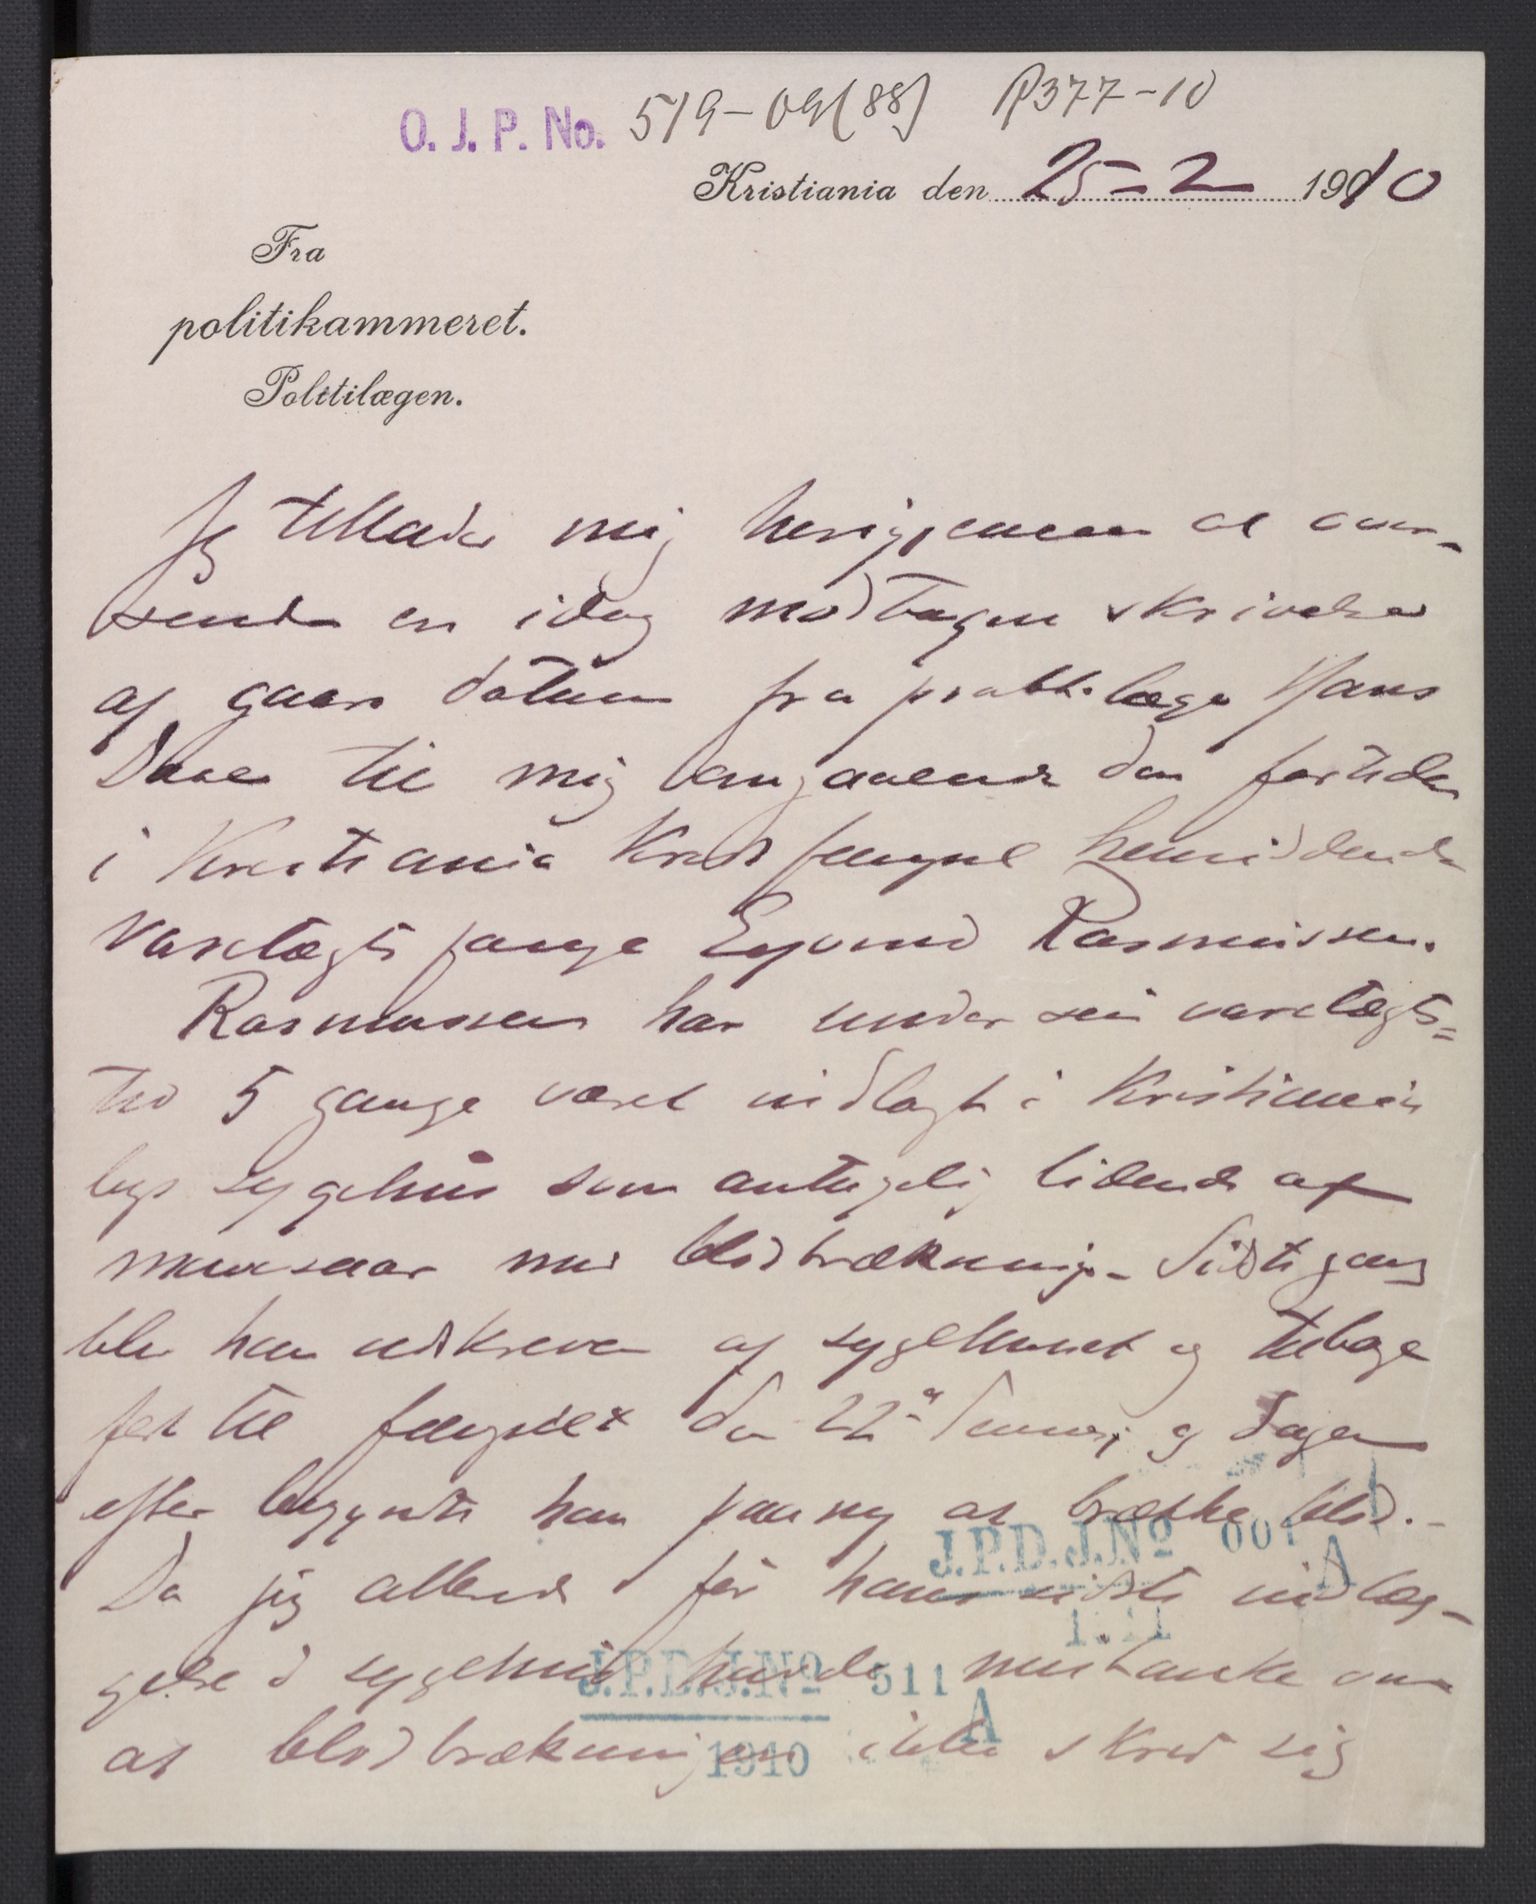 O. J. P. No. 519-09(88) P377-10
Kristiania den 25-2 1910
Fra
politikammeret.
Politilægen.
Jeg tillader mig herigjennem at over-
sende en idag modtagen skrivelse
af gaars datum fra prakt. læge Hans
Daae til mig angaaende den fortiden
i Kristiania Kredsfængsel hensiddende
Varetægtsfange Eyvind Rasmussen.
Rasmussen har under sin varetægts=
tid 5 gange været indlagt i Kristiania
bys sygehus som antagelig lidende af
mavesaar med blodbrækning. Sidste gang
blev han udskreven af sygehuset og tilbage
ført til fængslet den 22 og dagen
efter begyndte han paa ny at brække blod.-
Da jeg allerede før hans sidste indlæg-
gelse i sygehuset havde mistanke om
at blodbrækningen ikke skrev sig
J.P.D.J.Nº 001 A
1911
J.P.D.J.Nº 511 A
1910